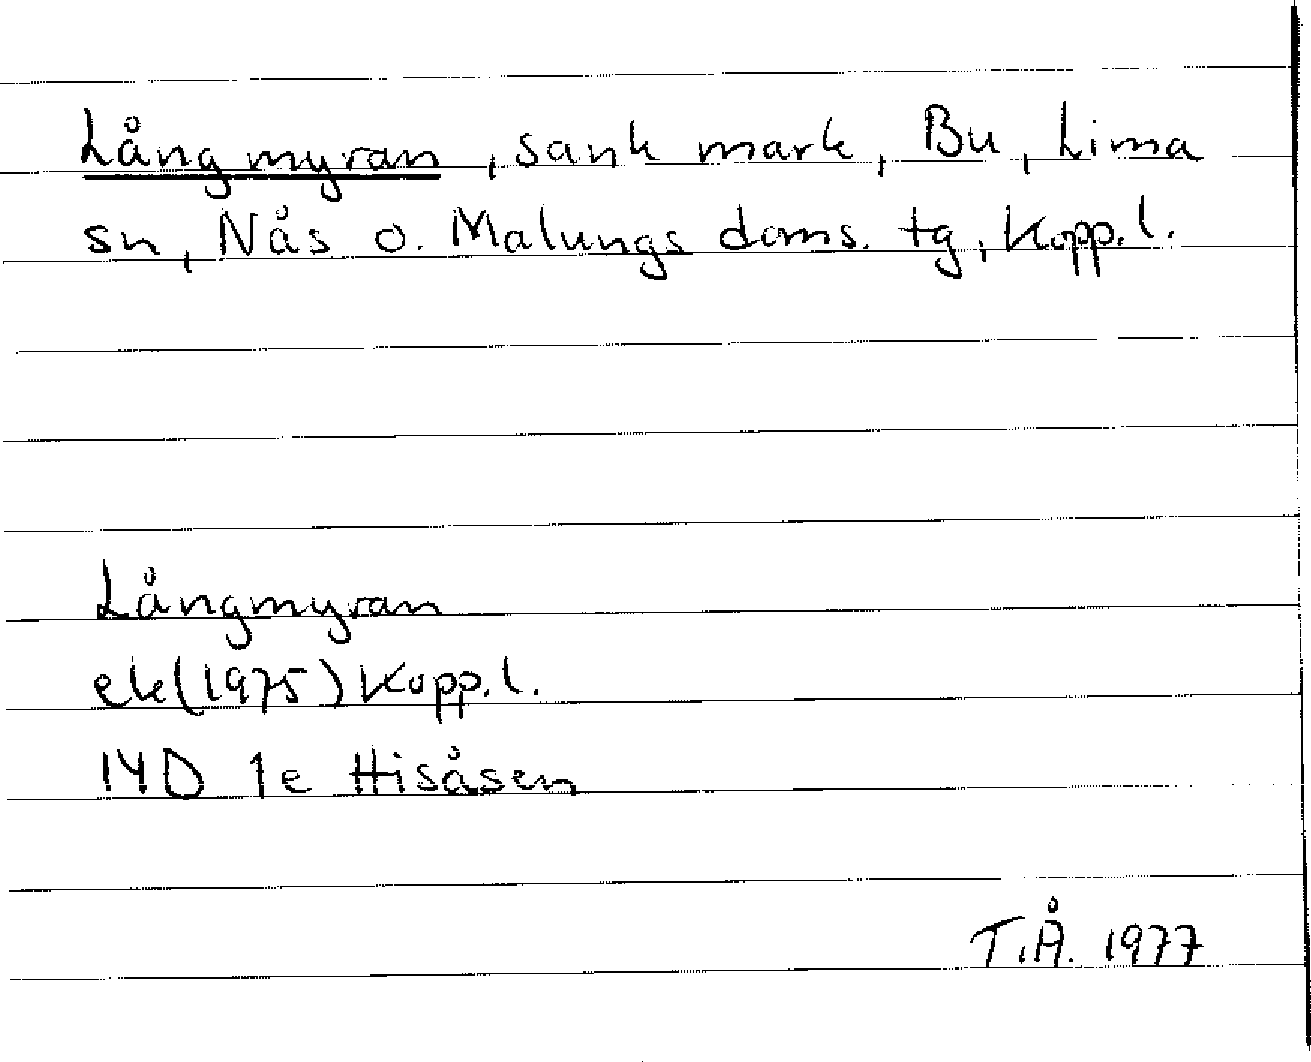 Långmyran, sank mark, Bu, Lima
sn, Nås o. Malungs doms. tg, Kopp.l.
Långmyran
ek(1975)Kopp.l.
14D 1e Hisåsen
T.Å. 1977